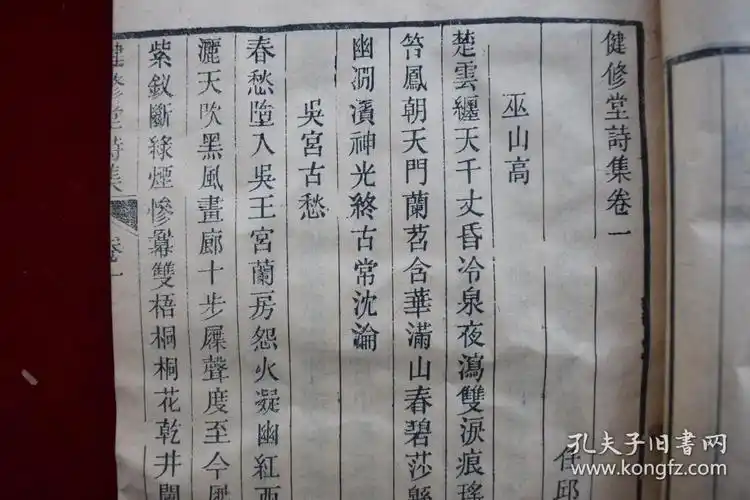 健修堂詩集卷一
任邱
巫山高
楚雲纏天千丈昏冷泉夜瀉雙淚痕瑤
笞鳳朝天門蘭苕含華滿山春碧莎
幽澗瀆神光終古常沈淪
吳宮古愁
春愁墮入吳王宮蘭房怨火凝幽紅西
灑天吹黑風畫廊十步屧聲度至今
紫釵斷綠煙慘幕雙梧桐桐花乾井
健修堂詩集 卷一
孔夫子旧书网
www.kongfz.com